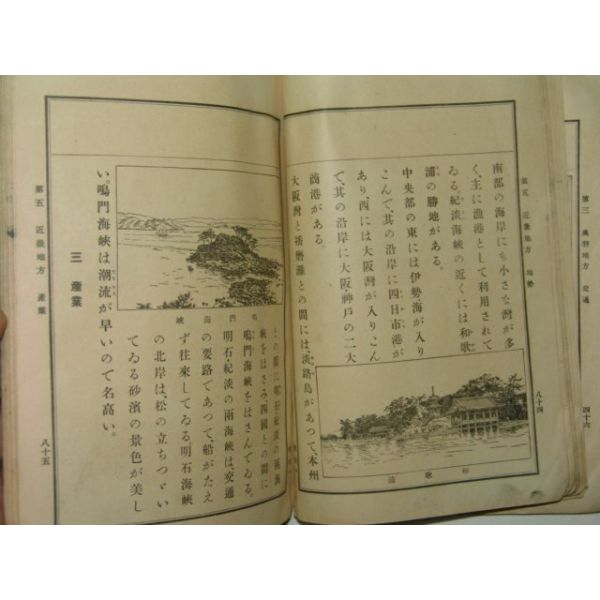 第三 奥羽地方 交通
四十六
第五 近畿地方 地勢
八十四
南部の海岸にも小さな灣が多
く、主に漁港として利用されて
ゐる。紀淡海峽の近くには和歌
浦の勝地がある。
中央部の東には伊勢海が入り
こんで、其の沿岸に四日市港が
あり、西には大阪灣が入りこん
で、其の沿岸に大阪・神戸の二大
商港がある。
大阪灣と播磨灘との間には、淡路島があつて、本州
和歌浦
との間に明石・紀淡の兩海
峽をはさみ、四國との間に
鳴門海峽をはさんでゐる。
明石・紀淡の兩海峽は、交通
の要路であつて、船がたえ
ず往來してゐる。明石海峽
の北岸は、松の立ちつゞい
てゐる砂濱の景色が美し
鳴門海峽
い。鳴門海峽は潮流が早いので名高い。
三 產業
第五 近畿地方 產業
八十五